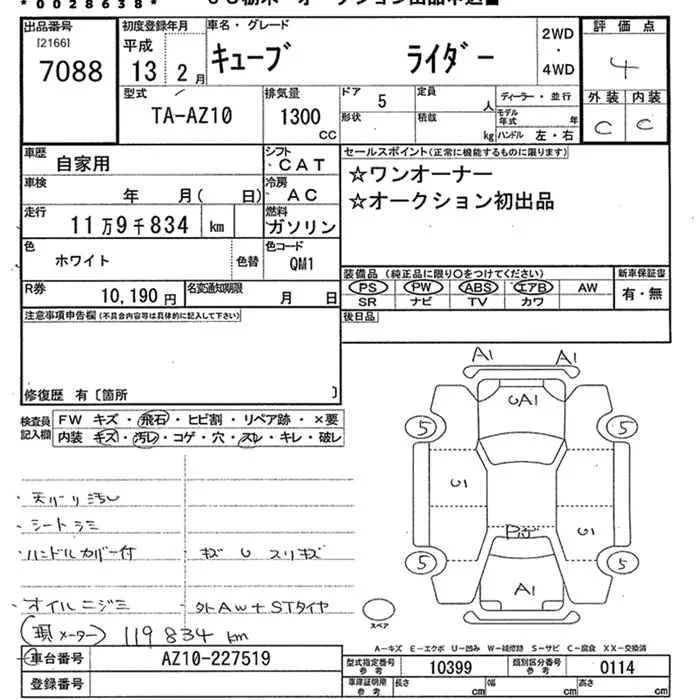 * 0 0 2 8 6 3 8 *
出品番号 初度登録年月 車名・グレード 2WD・4WD 評価点
[2166] 7088 平成 13 2月 キューブ ライダー 4
型式 TA-AZ10 排気量 1300 CC ドア 5 定員 人 ディーラー・並行 外装 内装
形状 積載 kg モデル年式 年 ハンドル 左・右 C C
車歴 自家用 シフト CAT セールスポイント(正常に機能するものに限ります)
車検 年 月( 日) 冷房 AC ☆ワンオーナー
走行 11万9千834 km 燃料 ガソリン ☆オークション初出品
色 ホワイト 色替 色コード QM1
装備品(純正品に限り○をつけてください) 新車保証書
R券 10,190円 名変通知期限 月 日 PS PW ABS エアB AW 有・無
SR ナビ TV カワ
注意事項申告欄(不具合内容等は具体的に記入して下さい) 後日品
修復歴 有〔箇所 〕
検査員記入欄 FW キズ・飛石・ヒビ割・リペア跡・×要
内装 キズ・汚レ・コゲ・穴・スレ・キレ・破レ
A1 A1
UA1
5 5
U1 U1
5 5
A1
・天バリ汚レ
・シートシミ
・ハンドルカバー付 キズ U スリキズ
・オイルニジミ 外AW+STタイヤ
スペア
(現メーター) 119834 km
A-キズ E-エクボ U-凹み W-補修跡 S-サビ C-腐食 XX-交換済
車台番号 AZ10-227519 型式指定番号 参考 10399 類別区分番号 参考 0114
登録番号 車庫証明用 参考 長さ cm 幅 cm 高さ cm